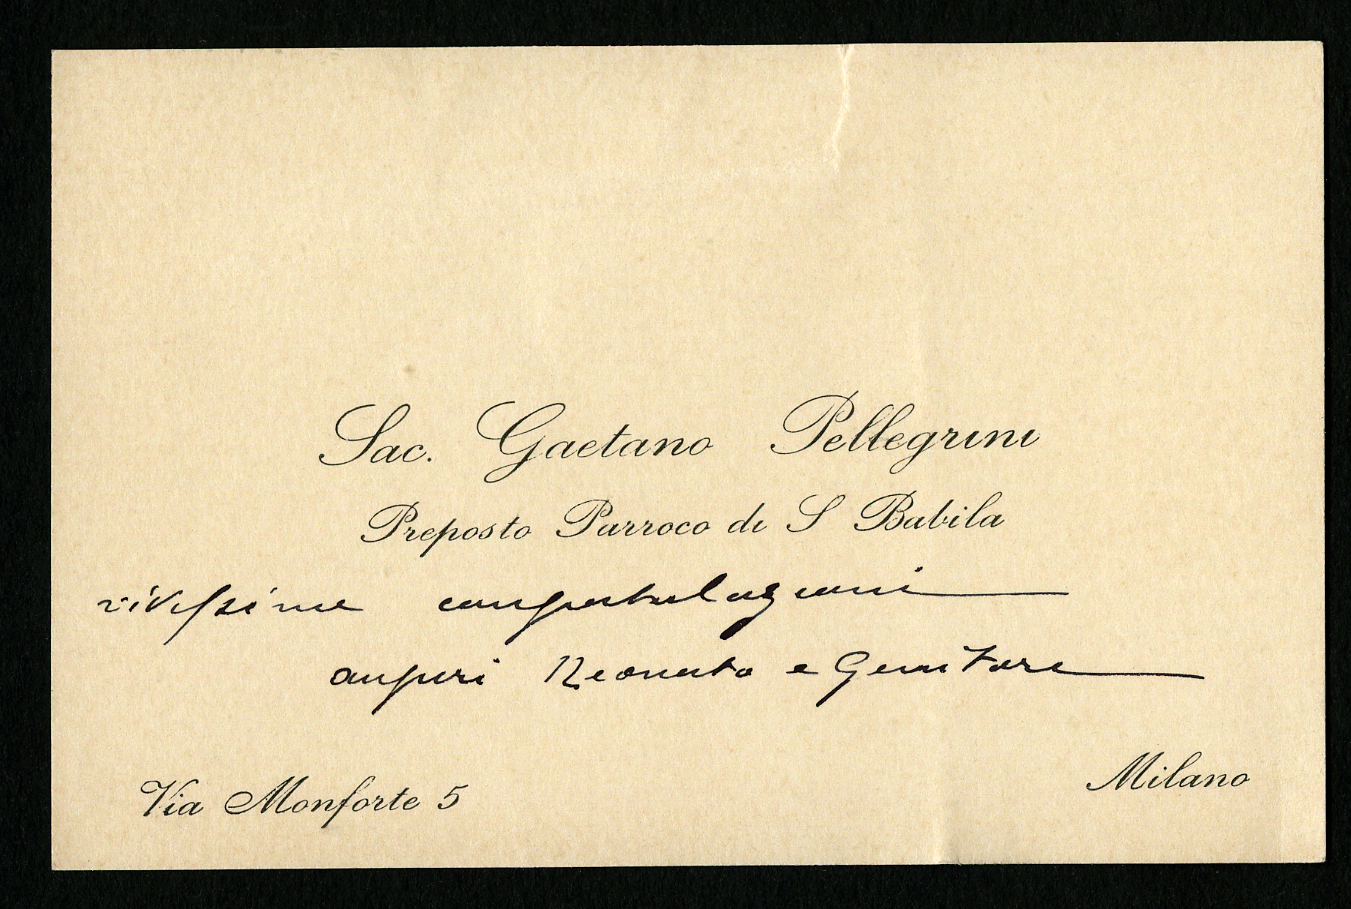 Sac. Gaetano Pellegrini
Preposto Parroco di S Babila
vivissime congratulazioni
auguri Neonato e Genitore
Via Monforte 5
Milano